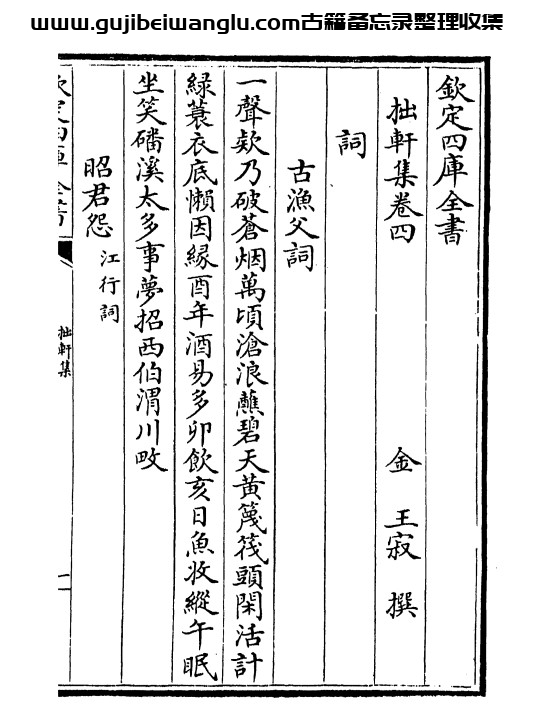 www.gujibeiwanglu.com古籍备忘录整理收集
欽定四庫全書
拙軒集卷四
金 王寂 撰
詞
古漁父詞
一聲欸乃破蒼烟萬頃滄浪蘸碧天黃篾筏頭閑活計
綠蓑衣底懶因緣酉年酒易多卯飲亥日魚收縱午眠
坐笑磻溪太多事夢招西伯渭川畋
昭君怨 江行詞
拙軒集